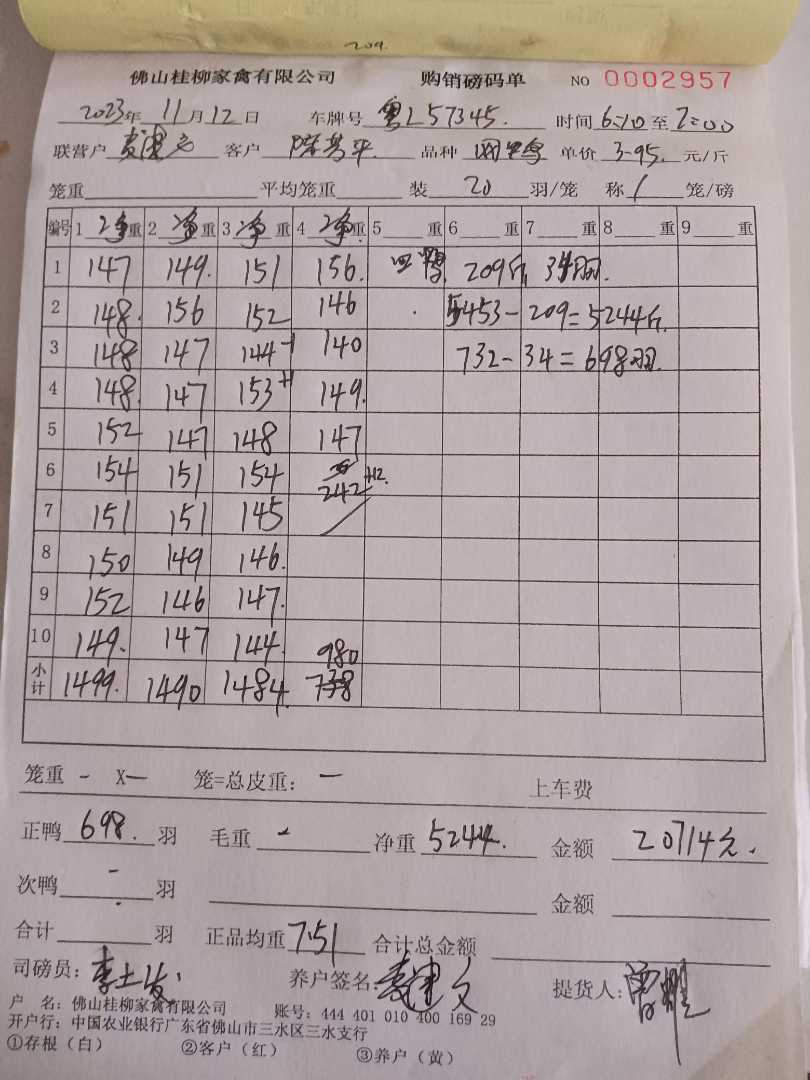 209.
佛山桂柳家禽有限公司 购销磅码单 NO 0002957
2023年 11月12日 车牌号 粤L57345. 时间 6:10 至 7:00
联营户 客户 品种 单价 3-95. 元/斤
笼重 平均笼重 装 20 羽/笼 称 1 笼/磅
编号 1 净重 2 净重 3 净重 4 净重 5 重 6 重 7 重 8 重 9 重
1 147 149. 151 156. 209斤 34羽.
2 148. 156 152 146 5453-209=5244斤.
3 148 147 144-1 140 732-34=698羽.
4 148. 147 153+1 149.
5 152 147 148 147
6 154 151 154 242+12.
7 151 151 145
8 150 149 146.
9 152 146 147.
10 149. 147 144. 980
小计 1499. 1490 1484. 738
笼重 - X— 笼=总皮重: — 上车费
正鸭 698. 羽 毛重 - 净重 5244. 金额 20714元.
次鸭 - 羽 金额
合计 羽 正品均重 7.51 合计总金额
司磅员: 养户签名: 提货人:
户 名: 佛山桂柳家禽有限公司 账号: 444 401 010 400 169 29
开户行: 中国农业银行广东省佛山市三水区三水支行
①存根（白） ②客户（红） ③养户（黄）